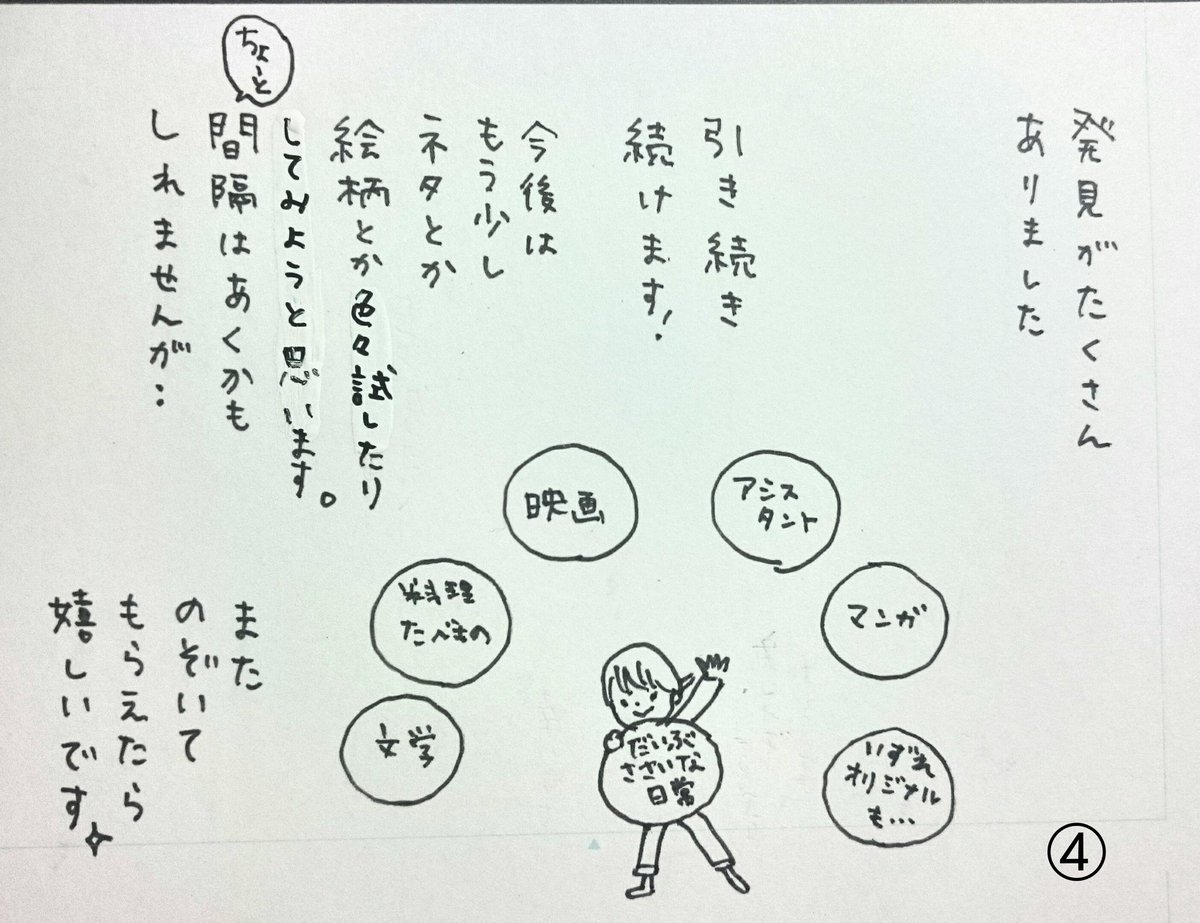 発見がたくさん
ありました
引き続き
続けます!
今後は
もう少し
ネタとか
絵柄とか色々試したり
してみようと思います。
ちょーと
間隔はあくかも
しれませんが‥
映画
アシス
タント
料理
たべもの
マンガ
文学
だいぶ
ささいな
日常
いずれ
オリジナル
も…
また
のぞいて
もらえたら
嬉しいです
④